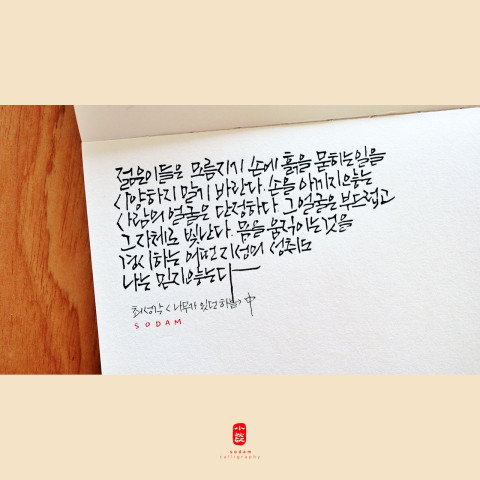 젊은이들은 모름지기 손에 흙을 묻히는 일을
사양하지 말기 바란다. 손을 아끼지 않는
사람의 얼굴은 단정하다. 그 얼굴은 부드럽고
그 자체로 빛난다. 몸을 움직이는 것을
경시하는 어떤 지성의 성취도
나는 믿지 않는다
최성각 <나무가 있던 하늘> 中
SODAM
sodam
calligraphy